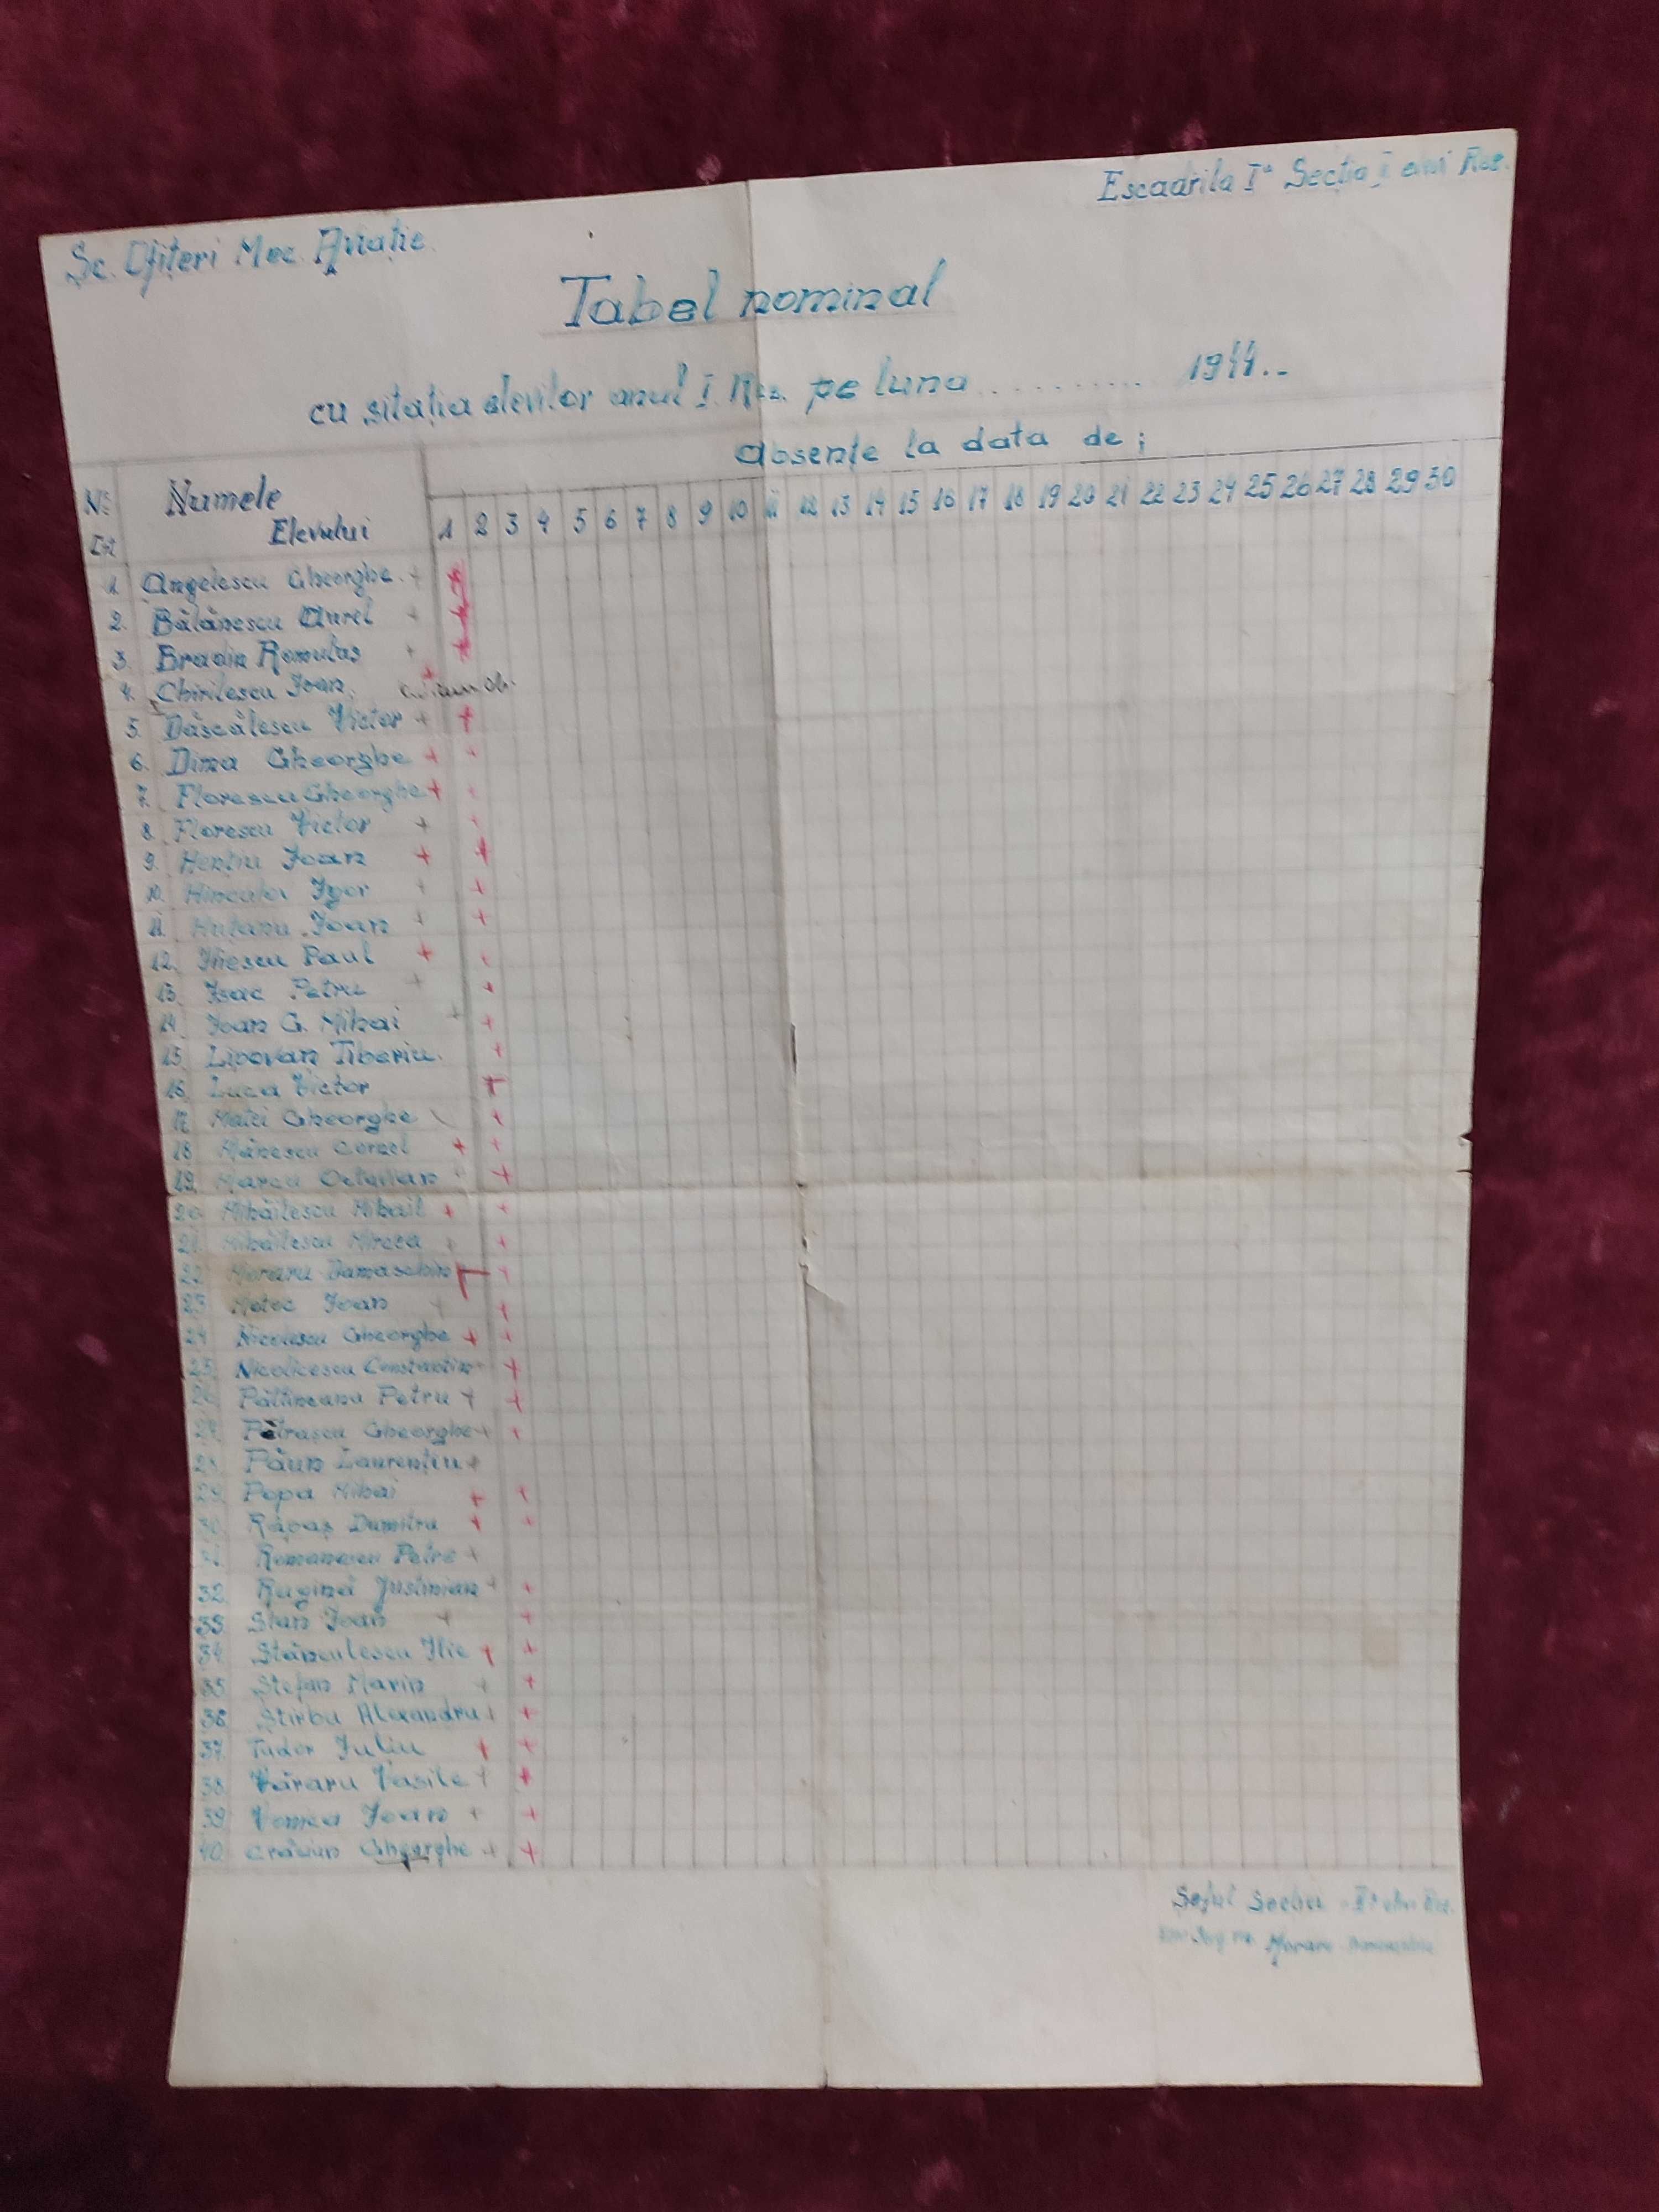 Șc. Ofițeri Mec. Aviație.
Escadrila Iª Secția I anul Rez.
Tabel nominal
cu sitația elevilor anul I. Rez. pe luna .......... 1944..
Nº Crt
Numele Elevului
absențe la data de ;
1 2 3 4 5 6 7 8 9 10 11 12 13 14 15 16 17 18 19 20 21 22 23 24 25 26 27 28 29 30
1. Angelescu Gheorghe.
2. Bălănescu Aurel
3. Bradin Romulus
4. Chirilescu Joan.
5. Dăscălescu Victor
6. Dima Gheorghe
7. Florescu Gheorghe
8. Florescu Victor
9. Hențiu Joan
10. Hinculov Jgor
11. Huțanu Joan
12. Jliescu Paul
13. Jsac Petru
14. Joan G. Mihai
15. Lipovan Tiberiu.
16. Luca Victor
17. Matei Gheorghe
18. Mănescu Cornel
19. Marcu Octavian
20. Mihăilescu Mihail
21. Mihăilescu Mircea
22. Moraru Damaschin
23. Motoc Joan
24. Nicolescu Gheorghe
25. Nicolicescu Constantin
26. Păltineanu Petru
27. Pătrașcu Gheorghe
28. Păun Laurențiu
29. Popa Mihai
30. Râpaș Dumitru
31. Romanescu Petre
32. Rugină Justinian
33. Stan Joan
34. Stănculescu Jlie
35. Ștefan Marin
36. Știrbu Alexandru
37. Tudor Juliu
38. Văraru Vasile
39. Vomea Joan
40. Crăciun Gheorghe
Șeful Secției
Moraru Damaschin